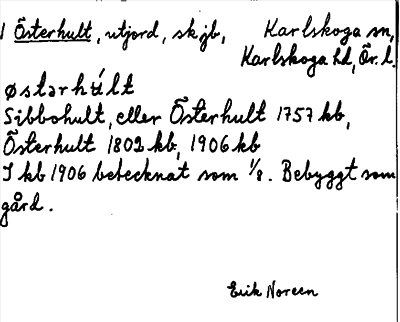 1 Österhult, utjord, skjb, Karlskoga sn,
Karlskoga hd, Ör. l.
østərhúlt
Sibbohult, eller Österhult 1757 kb,
Österhult 1802 kb, 1906 kb
I kb 1906 betecknat som 1/8. Bebyggt som
gård.
Erik Noreen